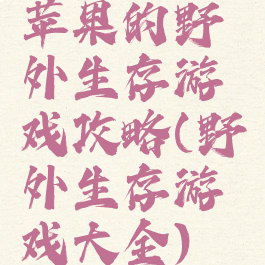 苹果的野
外生存游
戏攻略(野
外生存游
戏大全)